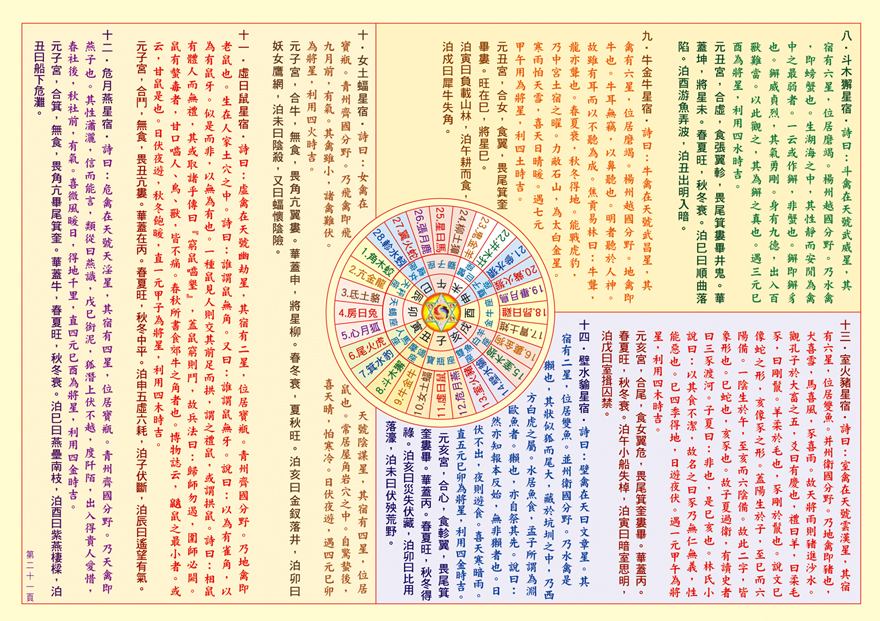 八．斗木獬星宿．詩曰：斗禽在天號武威星，其
宿有六星，位居磨竭。楊州越國分野。乃水禽
，即螃蟹也。生湖海之中，其性靜而安閒為禽
中之最弱者。一云或作獬，非蟹也。獬即獬豸
也。獬威貞烈，其氣勇剛。身有九德，出入百
獸難當。以此觀之，其為獬之真也。遇三元巳
酉為將星，利用四水時吉。
元丑宮，合虛，食張翼軫，畏尾箕婁畢井鬼。華
蓋坤，將星未。春夏旺，秋冬衰。泊巳曰順曲落
陷。泊酉游魚弄波，泊丑出明入暗。
九．牛金牛星宿．詩曰：牛禽在天號武昌星，其
禽有六星，位居磨竭。楊州越國分野。地禽即
牛也。牛耳無竅，以鼻聽也。明者聽於人神。
故雖有耳而以不聽為成。焦貢易林曰：牛聾，
龍亦聾也。春夏衰，秋冬得地。能戰虎豹，
乃中宮土宿之曜。力敵石山，為太白金星。
寒雨怕天雪，喜天日晴暖。遇七元
甲午用為將星，利四土時吉。
元丑宮，合女，食翼，畏尾箕奎
畢婁。旺在巳，將星巳。
泊寅曰負載山林，泊午耕而食，
泊戍曰犀牛失角。
十．女土蝠星宿．詩曰：女禽在
天號陰謀星，其宿有四星，位居
寶瓶。青州齊國分野。乃飛禽即飛
鼠也。常居屋角岩穴之中。自驚蟄後，
九月前，有氣。其禽雖小，諸禽難伏。
喜天晴，怕寒冷。日伏夜遊，遇四元巳卯
為將星，利用四火時吉。
元子宮，合牛，無食，畏角亢翼婁。華蓋申，將星柳。春冬衰，夏秋旺。泊亥曰金釵落井，泊卯曰
妖女鷹網，泊未曰陰殺，又曰蝠懷陰險。
十一．虛日鼠星宿．詩曰：虛禽在天號幽劫星，其宿有二星，位居寶瓶。青州齊國分野。乃地禽即
老鼠也。生在人家土穴之中。詩曰：誰謂鼠無角。又曰：誰謂鼠無牙。說曰：以為有雀角，以
為有鼠牙。似是而非。以無為有也。一種鼠見人則交其前足而拱，謂之禮鼠，或謂拱鼠。詩曰：相鼠
有體人而無禮。其或取諸乎傳曰『窮鼠嚙貍』，蓋鼠窮則鬥。故兵法曰：歸師勿遏，圍師必闕。
鼠有螫毒者，甘口嚙人、鳥、獸，皆不痛。春秋所書食郊牛之角者也。博物誌云，鼷鼠之最小者。或
云，甘鼠是也。日伏夜遊，秋冬飽暖，直一元甲子為將星，利用四木時吉。
元子宮，合鬥，無食，畏丑亢婁。華蓋在丙。春夏旺，秋冬中平。泊申五虛六耗，泊子伏斷，泊辰曰遙望有氣。
十二．危月燕星宿．詩曰：危禽在天號天淫星，其宿有四星，位居寶瓶。青州齊國分野。乃天禽即
燕子也。其性瀟灑，信而能言，類從曰燕識，戊巳銜泥，狐潛上伏不越，度阡陌，出入得貴人愛惜，
春社後，秋社前，有氣。喜微風暖日，得地千里。直四元巳酉為將星，利用四金時吉。
元子宮，合箕，無食，畏角亢畢尾箕奎。華蓋牛，春夏旺，秋冬衰。泊巳曰燕壘南枝，泊酉曰紫燕棲樑，泊
丑曰船下危灘。
十三．室火豬星宿．詩曰：室禽在天號雲漢星，其宿
有六星，位居雙魚。並州衛國分野。乃地禽即豬也，
犬喜雪，馬喜風，豕喜雨。故天將雨則豬進沙水。
觀孔子於大畜之五，爻曰有慶也，禮曰羊，曰柔毛
豕，曰剛鬣。羊柔於毛也，豕剛於鬣也。說文巳
像蛇之形，亥像豕之形。蓋陽生於子，至巳而六
陽備。一陰生於午，至亥而六陰備。故此二字，皆
象形也。巳蛇也，亥豕也。故子夏過衛，有讀史者
曰三豕渡河。子夏曰：非也，是巳亥也。林氏小
說曰：以其食不潔，故名之曰豕乃無仁無義，性
能惡也。巳四季得地，日遊夜伏。遇一元甲午為將
星，利用四木時吉。
元亥宮，合尾，食女翼危，畏尾箕奎婁畢。華蓋丙。
春夏旺，秋冬衰。泊午小船失棹，泊寅曰暗室思明，
泊戍曰室揖囚禁。
十四．壁水貐星宿．詩曰：璧禽在天曰文章星。其
宿有二星，位居雙魚。並州衛國分野。乃水禽是
獺也。其狀似狐而尾大，藏於坑圳之中，乃西
方白虎之屬。水居魚食，孟子所謂為淵
歐魚者。獺也，亦自祭其先。說曰：
然亦知報本反始，無非獺者也。日
伏不出，夜則游食。喜天寒暗雨。
直五元巳卯為將星，利用四金時吉。
元亥宮，合心，食軫翼，畏尾箕
奎婁畢。華蓋丙。春夏旺，秋冬得
祿。泊亥曰災失伏藏，泊卯曰比用
落濠，泊未曰伏殃荒野。
1.角木蛟
2.亢金龍
3.氐土貉
4.房日兔
5.心月狐
6.尾火虎
7.箕水豹
8.斗木獬
9.牛金牛
10.女土蝠
11.虛日鼠
12.危月燕
13.室火豬
14.壁水貐
15.奎木狼
16.婁金狗
17.胃土雉
18.昴日雞
19.畢月烏
20.觜火猴
21.參水猿
22.井木犴
23.鬼金羊
24.柳土獐
25.星日馬
26.張月鹿
27.翼火蛇
28.軫水蚓
子
丑
寅
卯
辰
巳
午
未
申
酉
戌
亥
第二十一頁